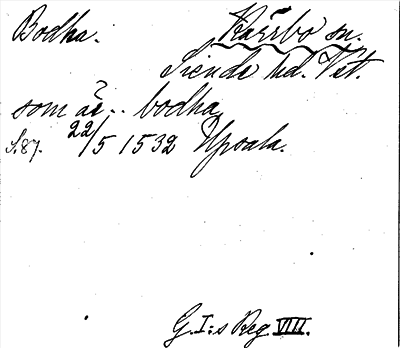 Bodha. Kärrbo sn.
Siende hd. Vst.
som är .. bodha
S.87. 22/5 1532 Upsala.
G.I:s Reg. VIII.